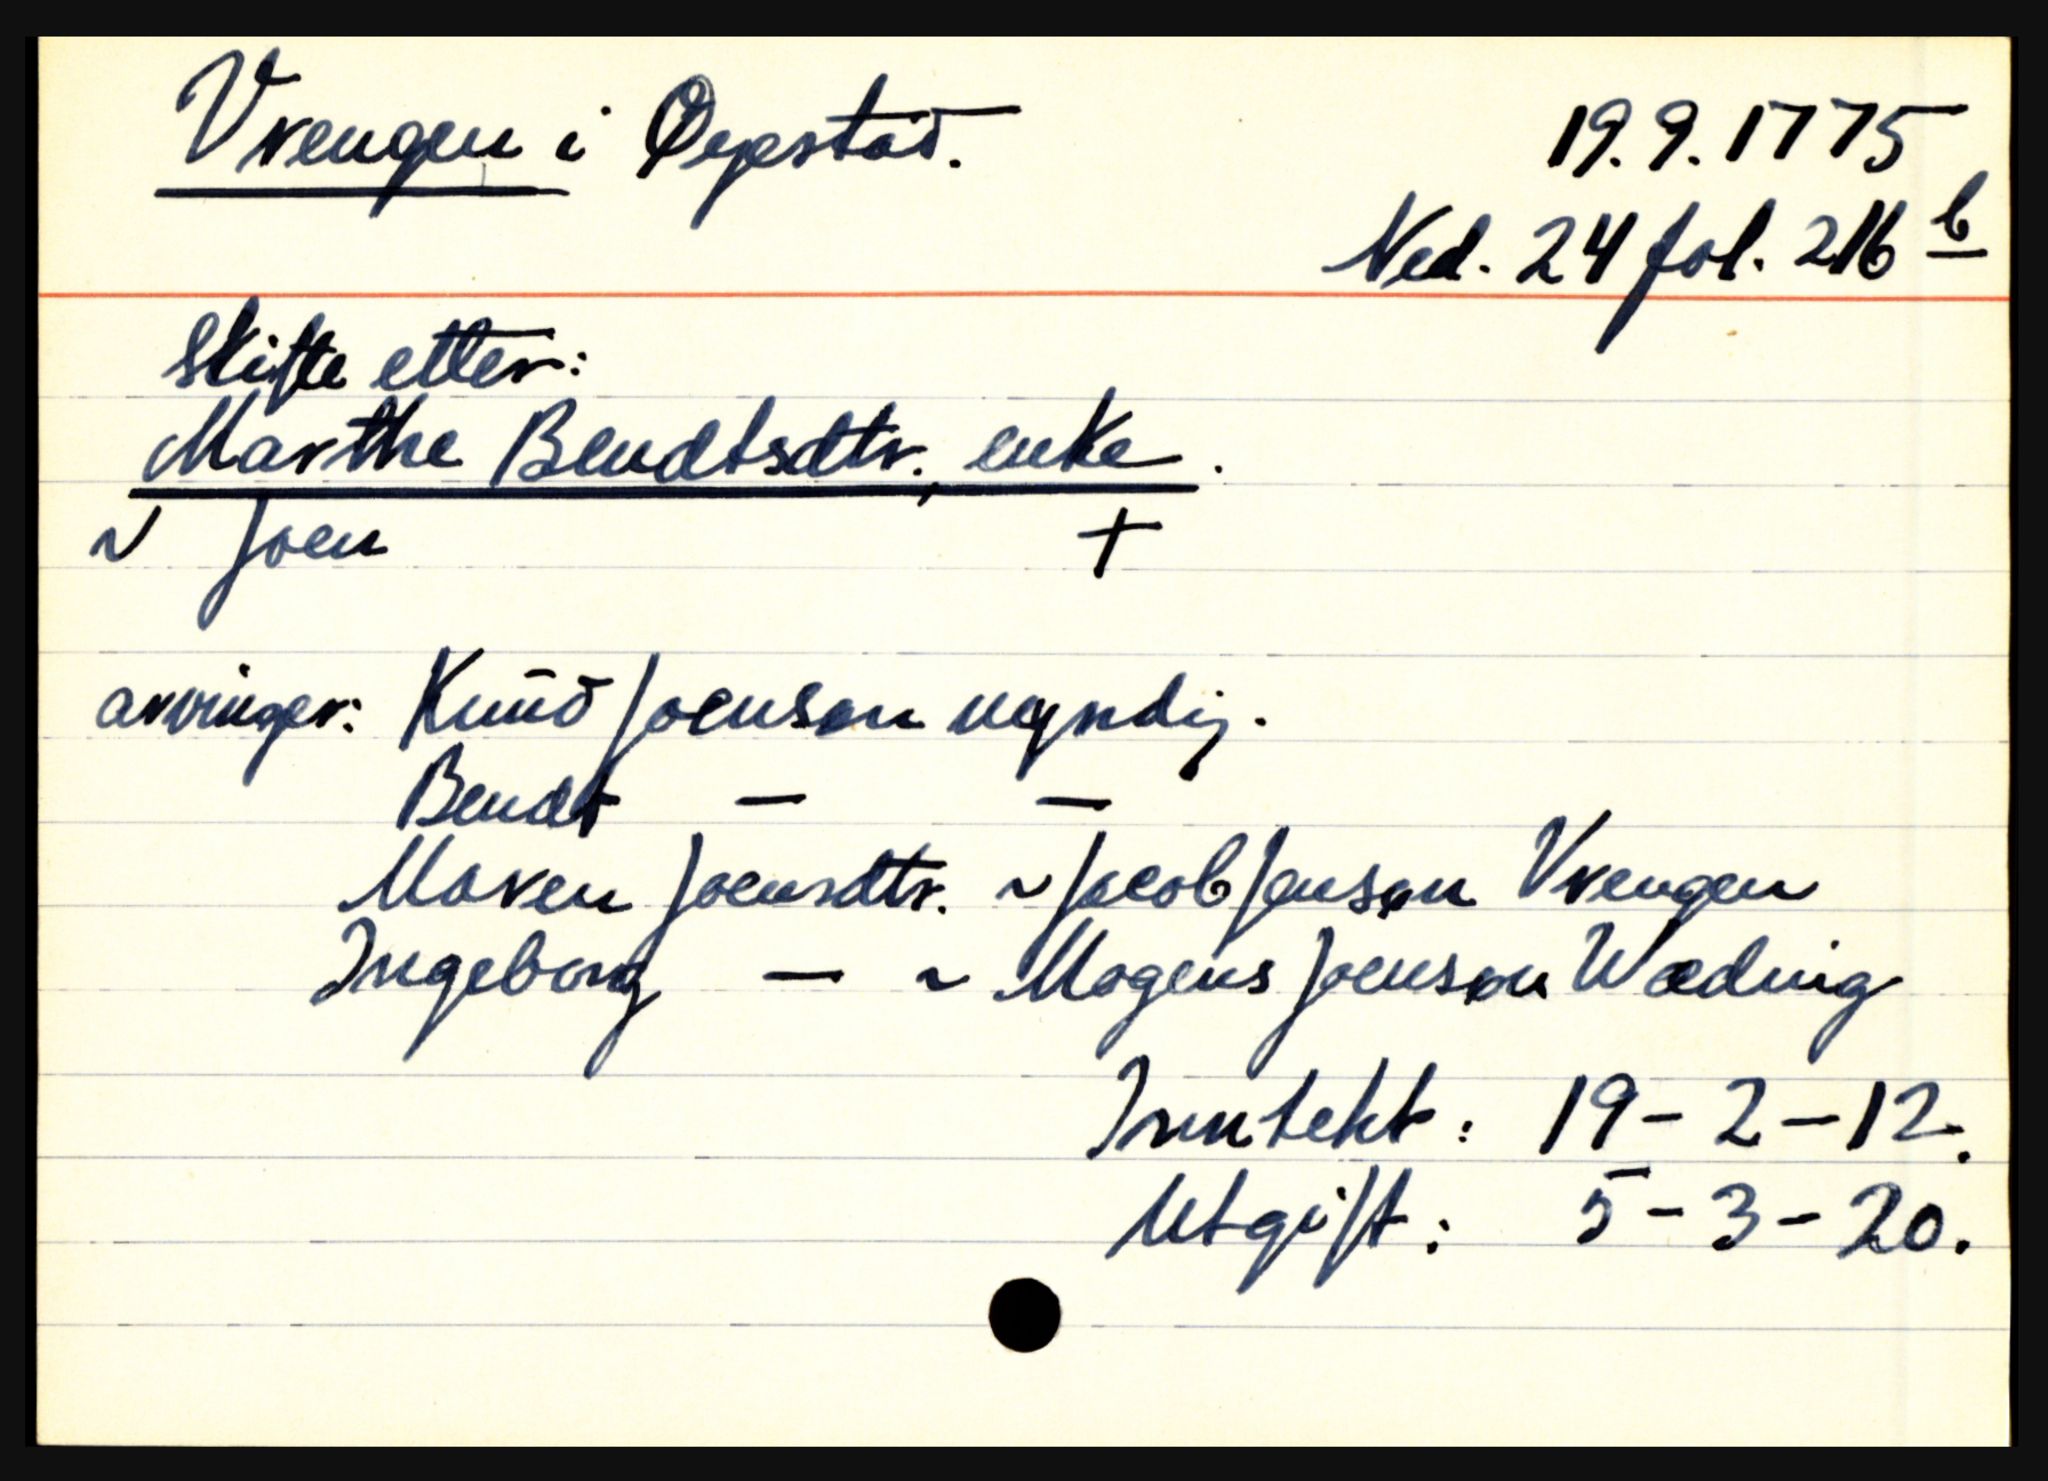 Vrengen i Øyestad. 19.9.1775
Ned. 24 fol. 216 b
Skifte etter:
Marthe Bendtsdtr., enke.
~ Joen +
arvinger: Knud Joensen myndig.
Bendt — —
Maren Joensdtr. ~ Jacob Jensen Vrengen
Ingeborg — ~ Mogens Joensen Wæding
Inntekt: 19 - 2 - 12.
Utgift: 5 - 3 - 20.